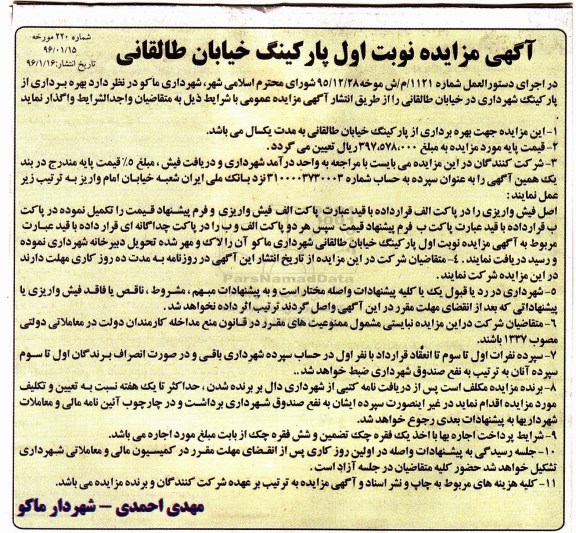 شماره ۲۲۰ مورخه
۹۶/۰۱/۱۵
تاریخ انتشار: ۹۶/۱/۱۶
آگهی مزایده نوبت اول پارکینگ خیابان طالقانی
در اجرای دستورالعمل شماره ۱۱۲۱/م/ش موخه ۹۵/۱۲/۲۸ شورای محترم اسلامی شهر، شهرداری ماکو در نظر دارد بهره برداری از
پارکینگ شهرداری در خیابان طالقانی را از طریق انتشار آگهی مزایده عمومی با شرایط ذیل به متقاضیان واجدالشرایط واگذار نماید
.
۱- این مزایده جهت بهره برداری از پارکینگ خیابان طالقانی به مدت یکسال می باشد.
۲- قیمت پایه مورد مزایده به مبلغ ۳۹۷،۵۷۸،۰۰۰ ریال تعیین می گردد .
۳- شرکت کنندگان در این مزایده می بایست با مراجعه به واحد درآمد شهرداری و دریافت فیش ، مبلغ ۵٪ قیمت پایه مندرج در بند
یک همین آگهی را به عنوان سپرده به حساب شماره ۳۱۰۰۰۰۳۷۳۰۰۰۳ نزد بانک ملی ایران شعبه خیابان امام واریز به ترتیب زیر
عمل نمایند :
اصل فیش واریزی را در پاکت الف قرارداده با قید عبارت پاکت الف فیش واریزی و فرم پیشنهاد قیمت را تکمیل نموده در پاکت
ب قرارداده با قید عبارت پاکت ب فرم پیشنهاد قیمت سپس هر دو پاکت الف و ب را در پاکت جداگانه ای قرار داده با قید عبارت
مربوط به آگهی مزایده نوبت اول پارکینگ خیابان طالقانی شهرداری ماکو آن را لاک و مهر شده تحویل دبیرخانه شهرداری نموده
و رسید دریافت نمایند . ۴- متقاضیان شرکت در این مزایده از تاریخ انتشار این آگهی در روزنامه به مدت ده روز کاری مهلت دارند
در این مزایده شرکت نمایند.
ParsNamadData
۵- شهرداری در رد یا قبول یک یا کلیه پیشنهادات واصله مختار است و به پیشنهادات مبهم ، مشروط ، ناقص یا فاقد فیش واریزی یا
پیشنهاداتی که بعد از انقضای مهلت مقرر در این آگهی واصل گردند ترتیب اثر داده نخواهد شد .
۶- متقاضیان شرکت دراین مزایده نبایستی مشمول ممنوعیت های مقرر در قانون منع مداخله کارمندان دولت در معاملاتی دولتی
مصوب ۱۳۳۷ باشند.
۷- سپرده نفرات اول تا سوم تا انعقاد قرارداد با نفر اول در حساب سپرده شهرداری باقی و در صورت انصراف برندگان اول تا سوم
سپرده آنان به ترتیب به نفع صندوق شهرداری ضبط خواهد شد ..
۸- برنده مزایده مکلف است پس از دریافت نامه کتبی از شهرداری دال بر برنده شدن ، حداکثر تا یک هفته نسبت به تعیین و تکلیف
مورد مزایده اقدام نماید در غیر اینصورت سپرده ایشان به نفع صندوق شهرداری برداشت و در چارچوب آئین نامه مالی و معاملات
شهرداریها به پیشنهادات بعدی رجوع خواهد شد.
۹- شرایط پرداخت اجاره بها با اخذ یک فقره چک تضمین و شش فقره چک از بابت مبلغ مورد اجاره می باشد.
۱۰- جلسه رسیدگی به پیشنهادات واصله در اولین روز کاری پس از انقضای مهلت مقرر در کمیسیون مالی و معاملاتی شهرداری
تشکیل خواهد شد حضور کلیه متقاضیان در جلسه آزاد است .
۱۱- کلیه هزینه های مربوط به چاپ و نشر اسناد و آگهی مزایده به ترتیب بر عهده شرکت کنندگان و برنده مزایده می باشد.
مهدی احمدی – شهردار ماکو